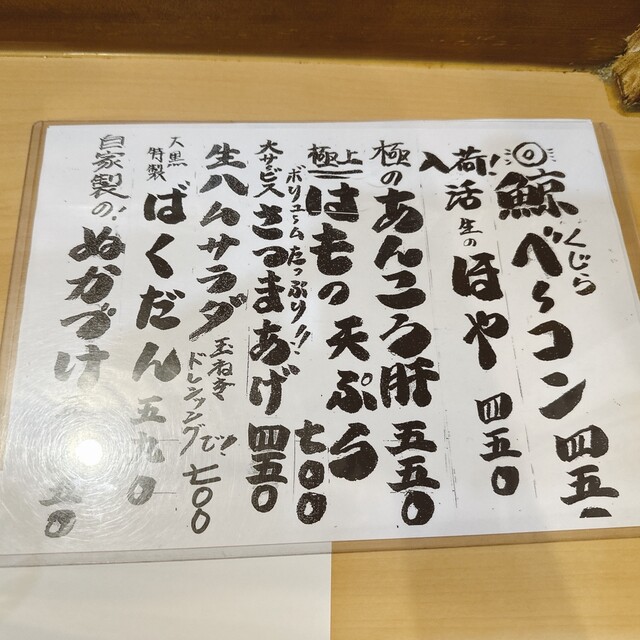 鯨べーコン くじら 四五
入荷!活 生の ほや 四五〇
極の あんころ肝 五五〇
極上 はもの天ぷら 七〇〇
ボリュームたっぷり!!
大サービス さつまあげ 四五〇
生ハムサラダ 玉ねぎドレッシングで! 七〇〇
大黒特製 ばくだん 五九〇
自家製の! ぬかづけ 五〇